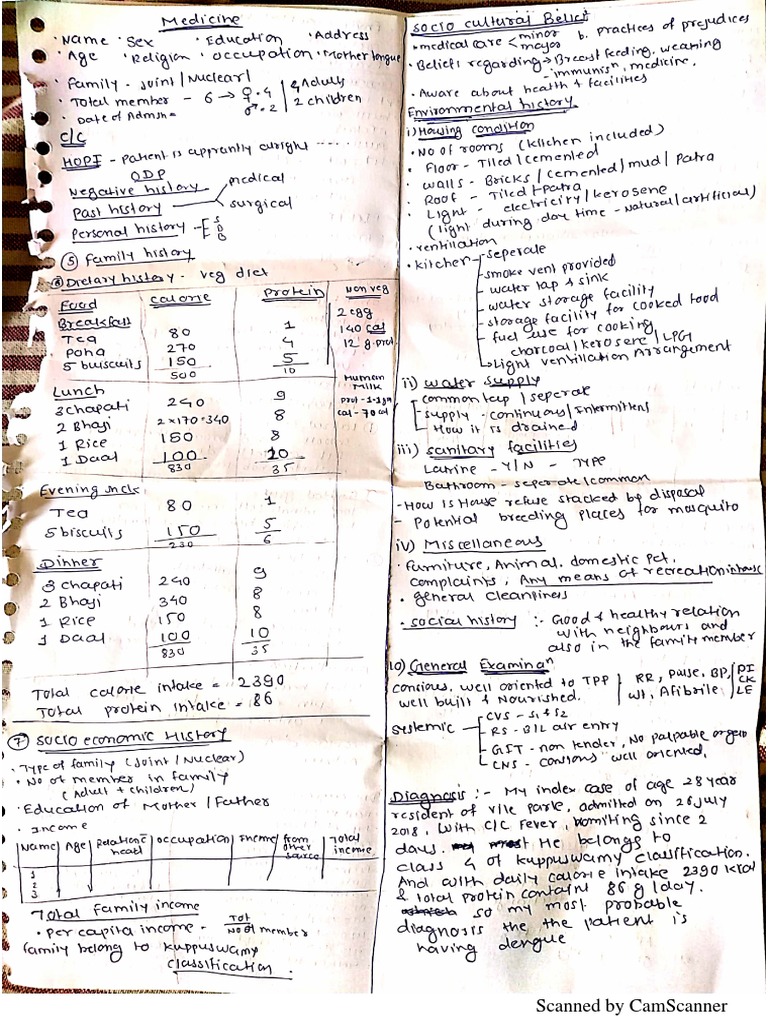 Medicine
• Name • Sex • Education • Address
• Age • Religion • occupation • Mother tongue
• Family - Joint / Nuclear /
• Total member - 6 → ♀ • 4 | 4 Adults
♂ • 2 | 2 children
• Date of Admsn =
C/C
HOPI - Patient is apprantly alright ----
ODP
Negative history
Past history
medical
surgical
Personal history
⑤ Family history
Dietary history - veg diet
Food calorie Protein Non veg
Breakfast 2 egg
Tea 80 1 140 cal
Poha 270 4 12 g. prot
5 buiscuits 150 5
500 10
Lunch Human Milk
3 chapati 240 9 prot - 1.1gm
2 Bhaji 2x170=340 8 cal - 70 cal
1 Rice 150 8
1 Daal 100 10
830 35
Evening snck
Tea 80 1
5 biscuits 150 5
230 6
Dinner
3 chapati 240 9
2 Bhaji 340 8
1 Rice 150 8
1 Daal 100 10
830 35
Total calorie intake = 2390
Total protein intake = 86
⑦ Socio economic History
• Type of family (Joint / Nuclear)
• No of member in family
(Adult + children)
• Education of Mother / Father
• Income
Name Age Relation c head occupation Income from other source Total income
1
2
3
Total Family income
• Per capita income - Tot / No of member
family belong to kuppuswamy
classification.
Socio cultural Belief
• medical care < minor major b. Practices of prejudices
• Beliefs regarding → Breast feeding, weaning
- immunisn, medicine,
• Aware about health & facilities
Environmental history
i) Housing condition
• No of rooms (kitchen included)
• Floor - Tiled / cemented
• walls - Bricks / cemented / mud / Patra
• Roof - Tiled / Patra
• Light - electricity / kerosene
(light during day time - natural / artificial)
• ventilation
• kitchen - seperate
- smoke vent provided
- water tap & sink
- water storage facility
- storage facility for cooked food
- fuel use for cooking
charcoal / kerosene / LPG
→ Light ventillation Arrangement
ii) water supply
common tap / seperate
- supply - continuous / Intermittent
- How it is drained
iii) sanitary facilities
Latrine - Y/N - TYPE
Bathroom - seperate / common
- How is House refuse stacked by disposal
- Potential breeding places for mosquito
iv) Miscellaneous
• Furniture, Animal, domestic pet,
complaints, Any means of recreation in house
• general cleanliness
• social history :- Good & healthy relation
with neighbours and
also in the family member
10) General Examinan
consious, well oriented to TPP
well built & Nourished.
RR, pulse, BP,
wt, Afibrile,
PI
CK
LE
systemic
CVS - S1 & S2
RS - B/L air entry
GIT - non tender, No palpable organ
CNS - consious well oriented,
Diagnosis :- My index case of age 28 year
resident of vile parle, admitted on 26 July
2018, with C/C Fever, vomiting since 2
days. He belongs to
class 4 of kuppuswamy classification.
And with daily calorie intake 2390 kcal
& total protein containt 86 g/day.
so my most probable
diagnosis the the patient is
having dengue
Scanned by CamScanner